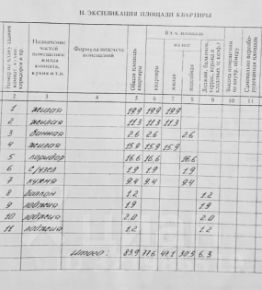 II. ЭКСПЛИКАЦИЯ ПЛОЩАДИ КВАРТИРЫ
Назначение частей помещения: жилая комната, кухня и т.п.
Формула подсчета
Общая площадь квартиры
В т.ч. площадь
квартиры
из нее
жилая
подсобная
1 2 3 4 5 6 7 8 9 10 11
1 жилая 19.9 19.9 19.9
2 жилая 11.3 11.3 11.3
3 ванная 2.6 2.6 2.6
4 жилая 15.9 15.9 15.9
5 коридор 16.6 16.6 16.6
6 1.9 1.9 1.9
7 кухня 9.4 9.4 9.4
8 балкон 1.2 1.2
9 лоджия 1.9 1.9
10 лоджия 2.0 2.0
11 лоджия 1.2 1.2
Итого: 83.9 77.6 47.1 30.5 6.3